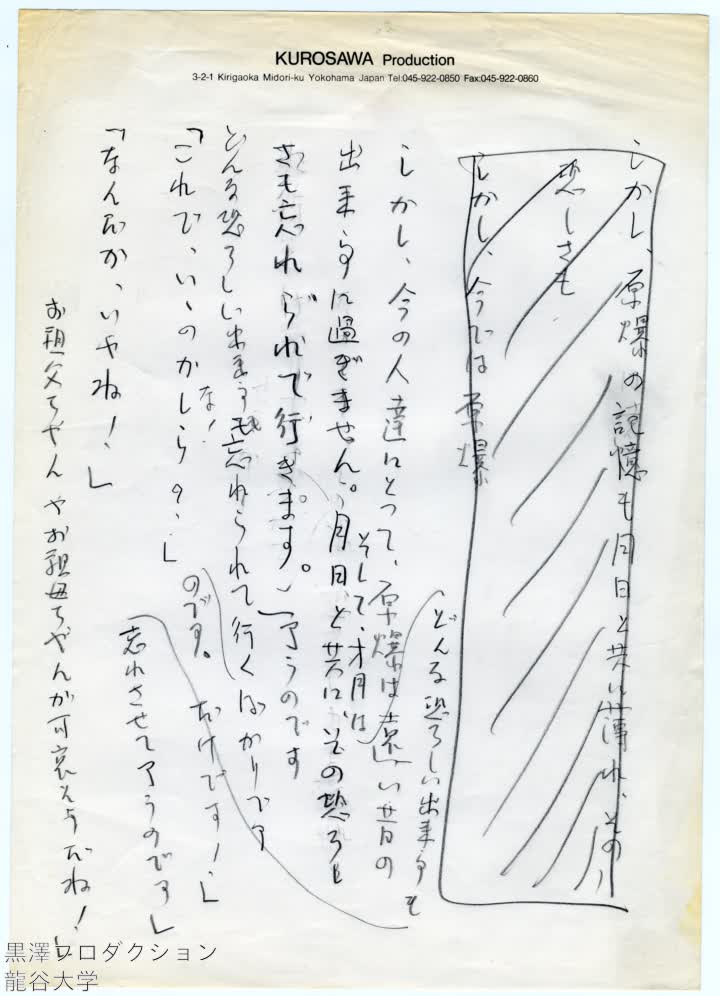 KUROSAWA Production
3-2-1 Kirigaoka Midori-ku Yokohama Japan Tel:045-922-0850 Fax:045-922-0860
しかし、原爆の記憶も月日と共に薄れ、その
恐しさも
しかし、今では原爆
どんな恐ろしい出来事も
しかし、今の人達にとって、原爆は遠い昔の
そして、才月は
出来事に過ぎません。月日と共に、その恐ろし
さも忘れられて行きます。
了うのです
どんな恐ろしい出来事も忘れられて行くばかりです
な!
のです。
だけです!」
「これで、いゝのかしら?、」
忘れさせて了うのです」
「なんだか、いやね!」
お祖父ちゃんやお祖母ちゃんが可哀そうだね!」
黒澤プロダクション
龍谷大学